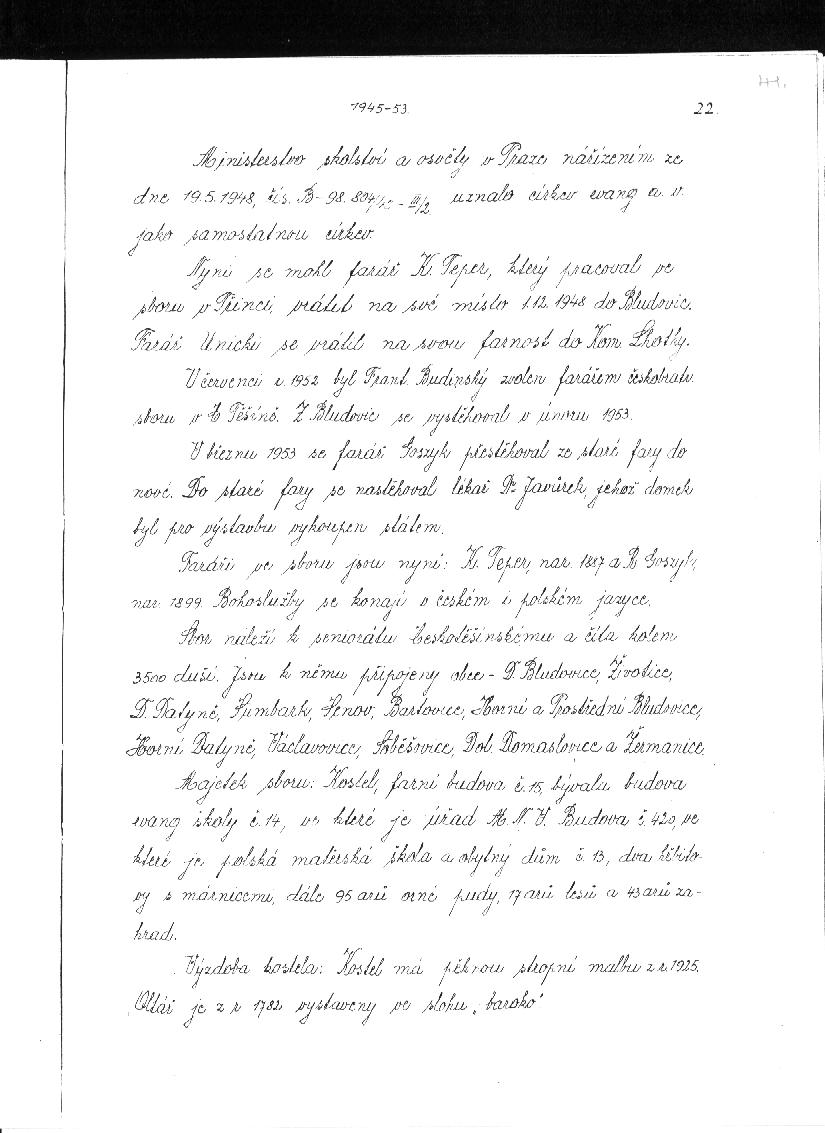 41.
1945-53. 22.
Ministerstvo školství a osvěty v Praze nářízením ze
dne 19.5.1948, čís. B- 98.804/ - III/2 uznalo církev evang a. v.
jako samostatnou církev.
Nyní se mohl farář K. Teper, který pracoval ve
sboru v Třinci, vrátit na své místo 1.12. 1948 do Bludovic.
Farář Unicki se vrátil na svou farnost do Kom. Lhotky.
V červenci r. 1952 byl Frant. Budinský zvolen farářem českobratr.
sboru v Č Těšíně. Z Bludovic se vystěhoval v únoru 1953.
V březnu 1953 se farář Goszyk přestěhoval ze staré fary do
nové. Do staré fary se nastěhoval lékař Dr Javůrek, jehož domek
byl pro výstavbu vykoupen státem.
Faráři ve sboru jsou nyní: K. Teper, nar. 1887 a R. Goszyk,
nar. 1899. Bohoslužby se konají v českém i polském jazyce.
Sbor náleží k seniorátu českotěšínskému a čítá kolem
3500 duší. Jsou k němu připojeny obce - D. Bludovice, Životice,
D. Datyně, Šumbark, Šenov, Bartovice, Horní a Prostřední Bludovice,
Horní Datyně, Václavovice, Soběšovice, Dol. Domaslovice a Žermanice.
Majetek sboru: Kostel, farní budova č. 15, bývalá budova
evang školy č. 14, ve které je úřad M. N. V. Budova č. 420, ve
které je polská mateřská škola a obytný dům č. 13, dva hřbito-
vy s márnicemi, dále 95 arů orné pudy, 17 arů lesů a 43 arů za-
hrad.
Výzdoba kostela: Kostel má pěknou stropní malbu z r. 1925.
Oltář je z r. 1782 vystavený ve slohu „baroko"